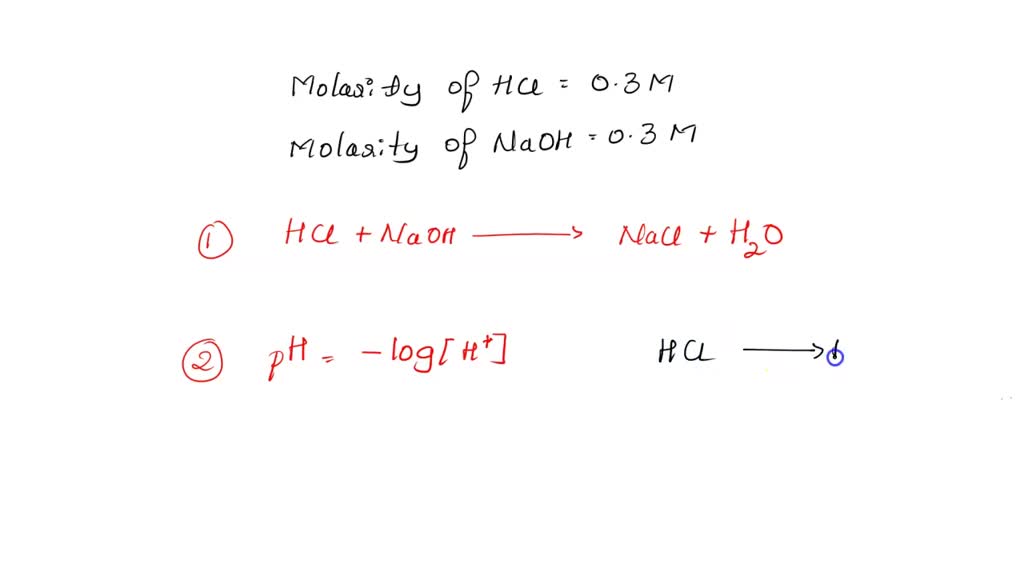 Molarity of HCl = 0.3 M
Molarity of NaOH = 0.3 M
① HCl + NaOH ⟶ NaCl + H₂O
② pH = -log[H⁺] HCl ⟶